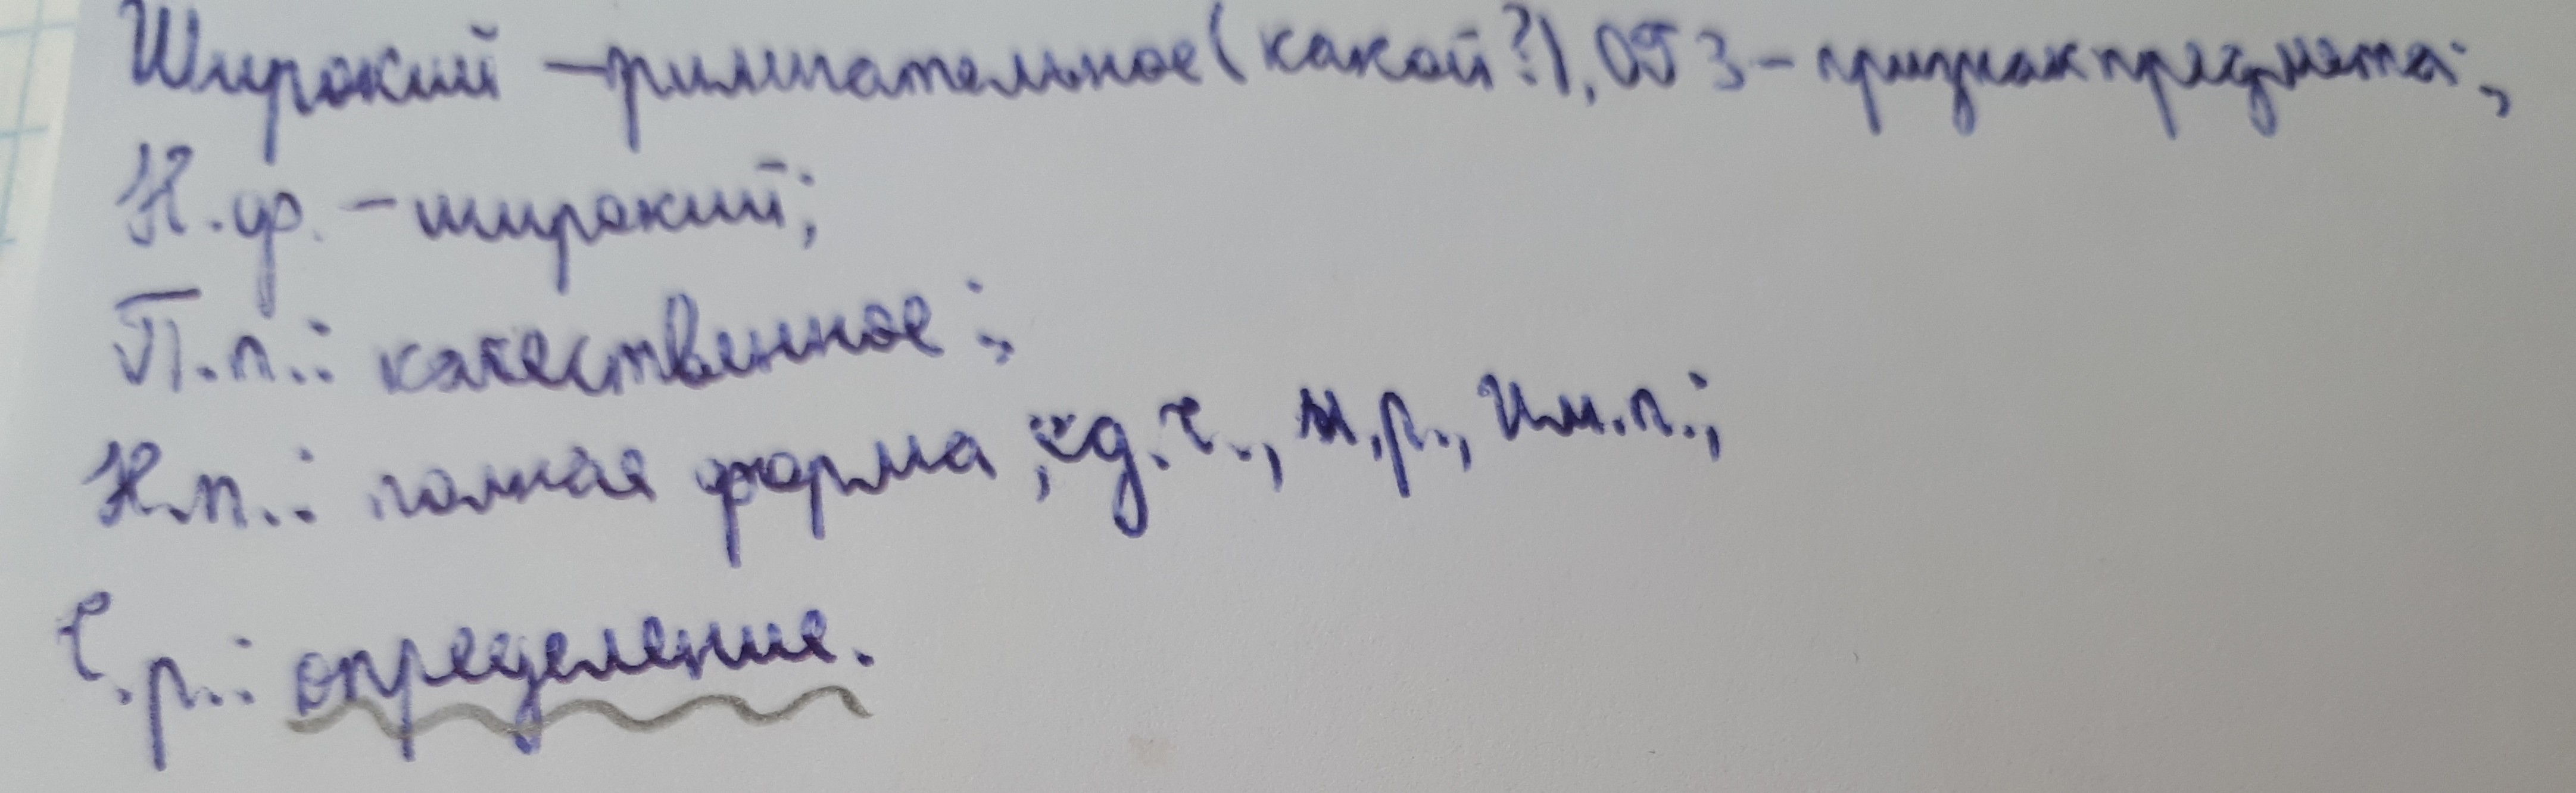 Широкий – рилигательное (какой?), ОГЗ – признак предмета;
Н.ф. – широкий;
П.п.: качественное;
Н.п.: полная форма, ед.ч., м.р., Им.п.;
С.р.: определение.